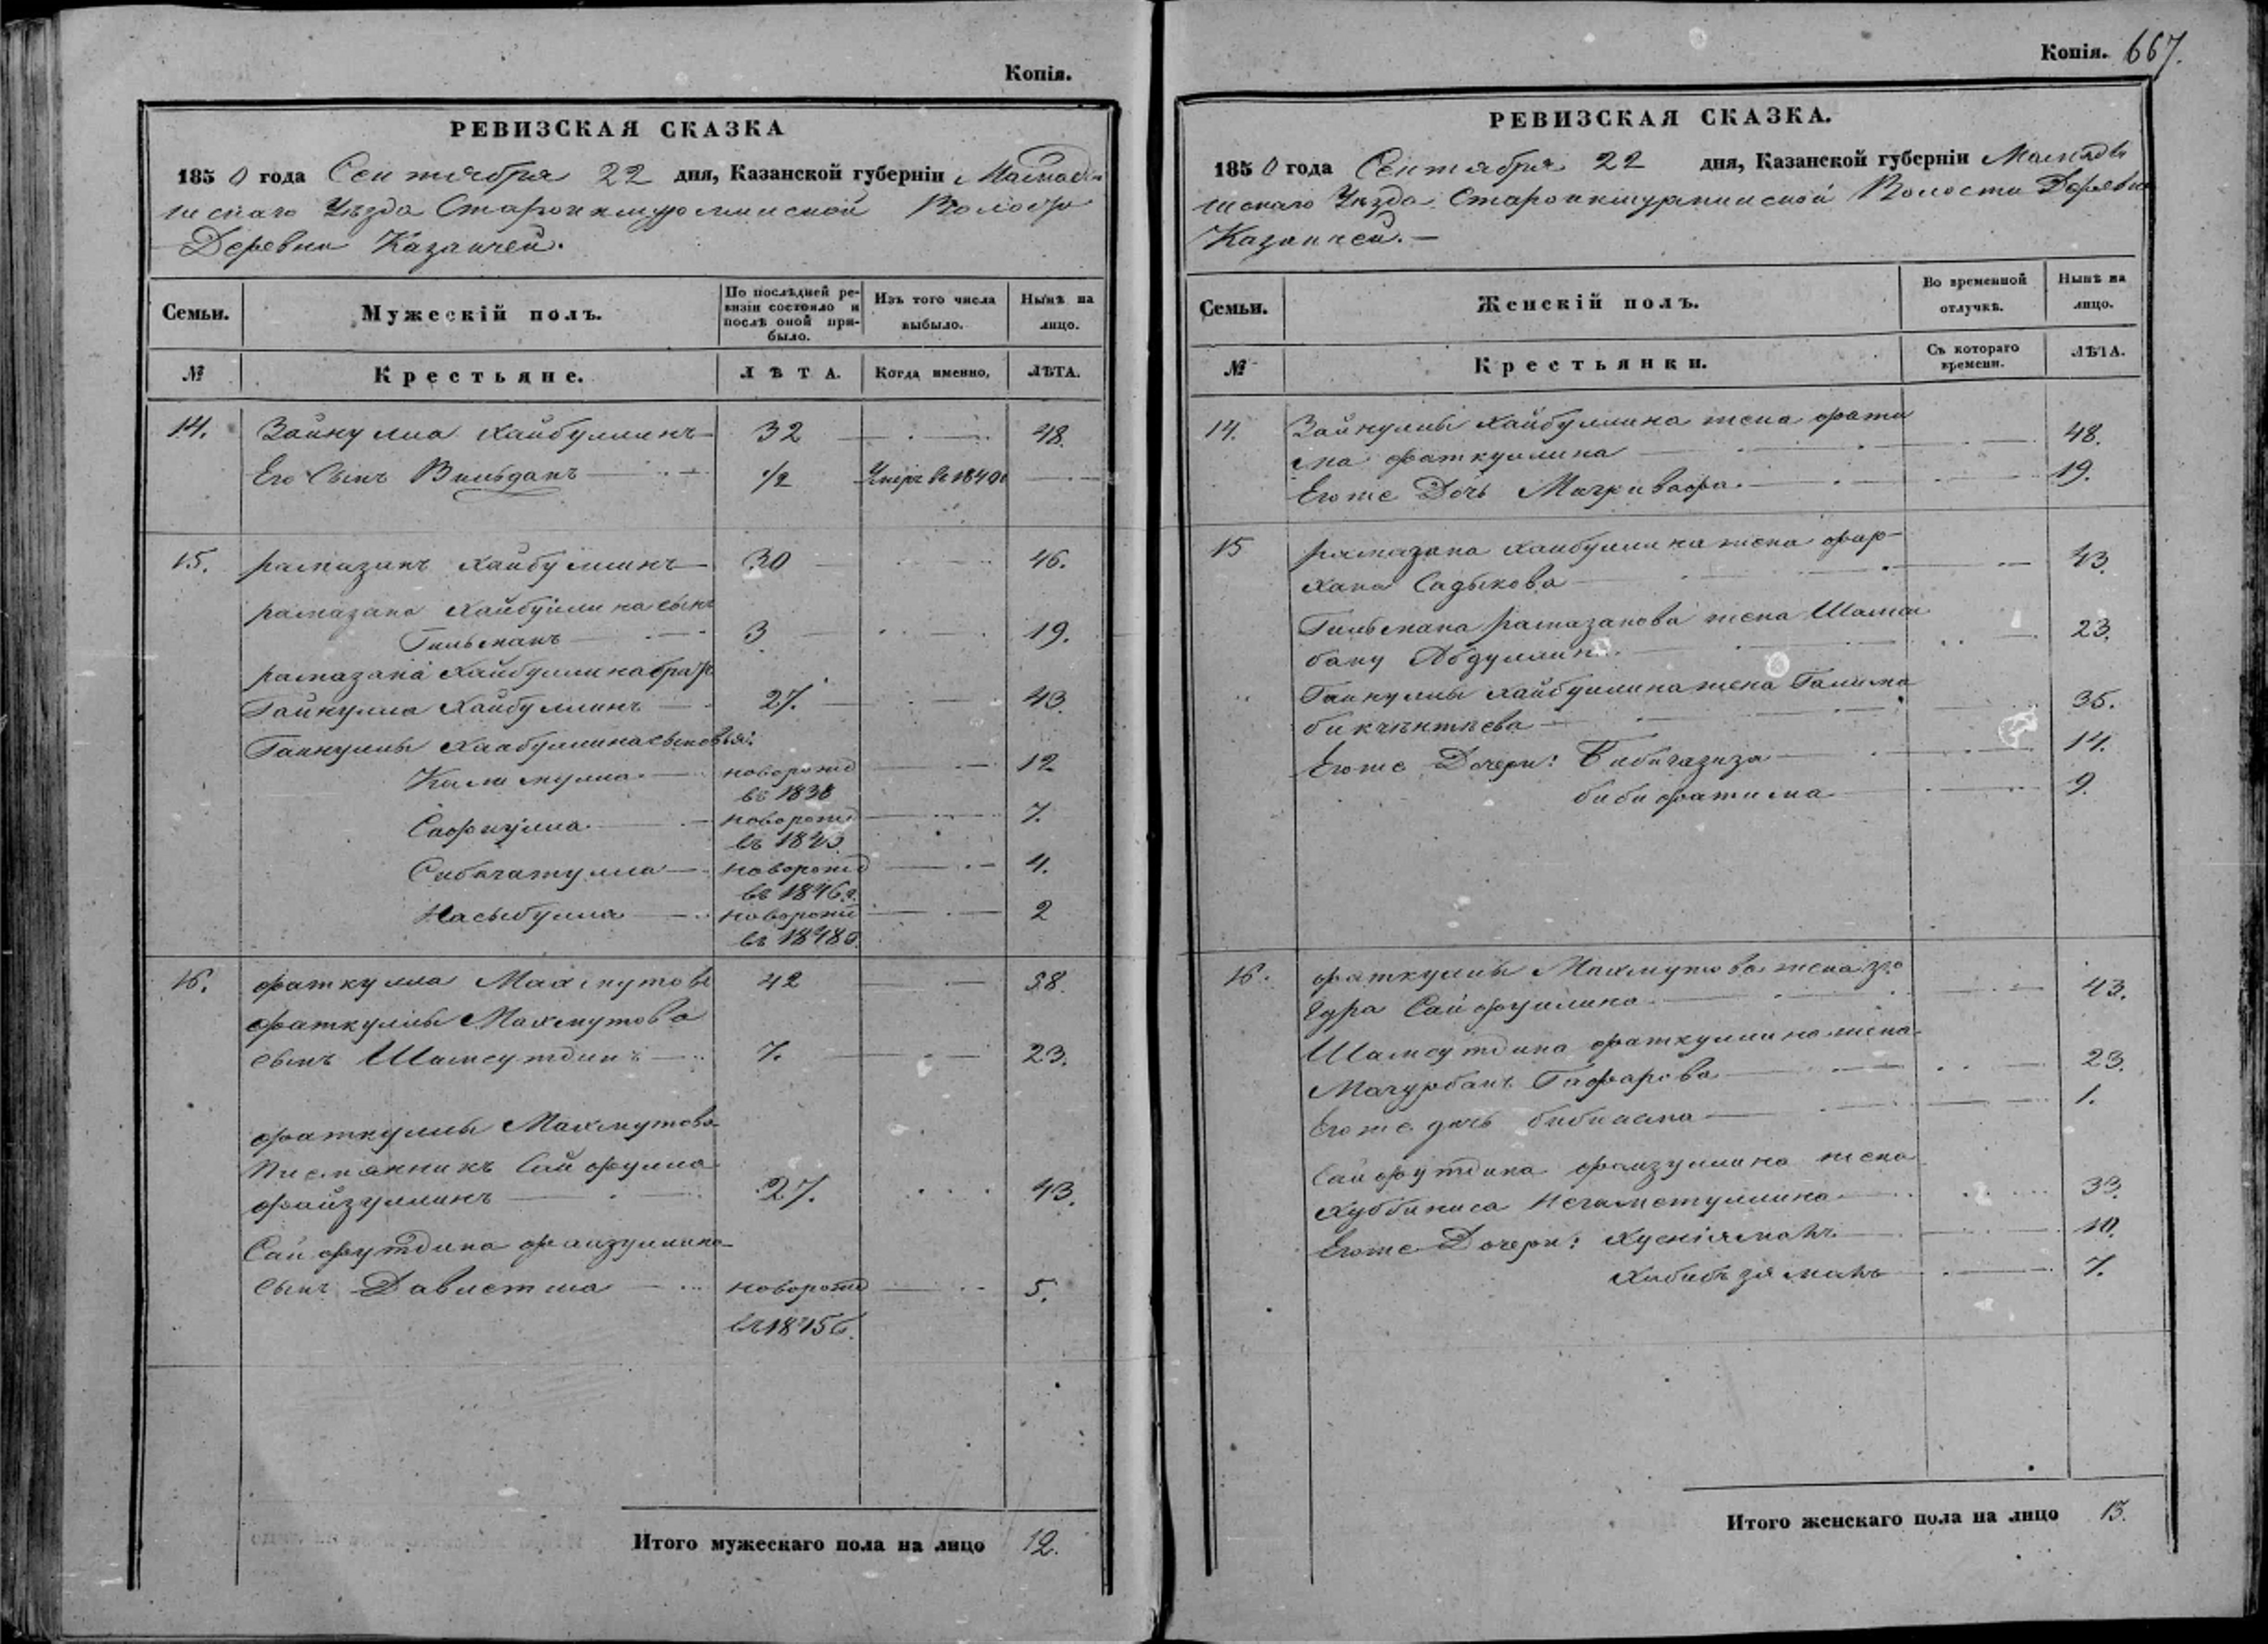 Копія.
РЕВИЗСКАЯ СКАЗКА
1850 года Сентября 22 дня, Казанской губерніи Мамады
шскаго Уѣзда Старо Волости
Деревни Казанчей.
Семьи. Мужескій полъ. По послѣдней ревизіи состояло и послѣ оной прибыло. Изъ того числа выбыло. Нынѣ на лицо.
№ Крестьяне. ЛѢТА. Когда именно. ЛѢТА.
14. Зайнулла Хайбуллинъ 32 48.
Его Сынъ Вильданъ 1/2 Умеръ въ 1840
15. рамазанъ Хайбуллинъ 30 46.
рамазана Хайбуллина сынъ
Гильманъ 3 19.
рамазана Хайбуллина братъ
Гайнулла Хайбуллинъ 27. 43.
Гайнуллы Хайбуллина сыновья:
новорожд 12
въ 1838
Сафиулла новорожд 7.
въ 1843
Сибагатулла новорожд 4.
въ 1846г.
Насыбулла новорожд 2
въ 1848г.
16. фаткулла Махмутовъ 42 58.
фаткуллы Махмутова
сынъ Шамсутдинъ 7. 23.
фаткуллы Махмутова
Племянникъ Сайфулла
файзуллинъ 27. 43.
Сайфутдина файзуллина
сынъ Давлетша новорожд 5.
въ 1845г.
Итого мужескаго пола на лицо 12.
Копія. 667.
РЕВИЗСКАЯ СКАЗКА.
1850 года Сентября 22 дня, Казанской губерніи Мамады
шскаго Уѣзда Старо Волости Деревни
Казанчей.
Семьи. Женскій полъ. Во временной отлучкѣ. Нынѣ на лицо.
№ Крестьянки. Съ котораго времени. ЛѢТА.
14. Зайнуллы Хайбуллина жена фати
ма фаткуллина 48.
Егоже Дочь 19.
15 рамазана Хайбуллина жена фар-
хана Садыкова 43.
Гильмана рамазанова жена Шамси
бану Абдуллина 23.
Гайнуллы Хайбуллина жена Галима
бикчѣнтѣева 35.
Егоже Дочери: Бибигазиза 14.
бибифатима 9.
16. фаткуллы Махмутова жена зю
гура Сайфуллина 43.
Шамсутдина фаткуллина жена
Гафарова 23.
Егоже дочь бибиасма 1.
Сайфутдина файзуллина жена
Хуббиниса Негаметуллина 33.
Егоже Дочери: Хуснізямалъ 10.
Хабибъзямалъ 7.
Итого женскаго пола на лицо 13.